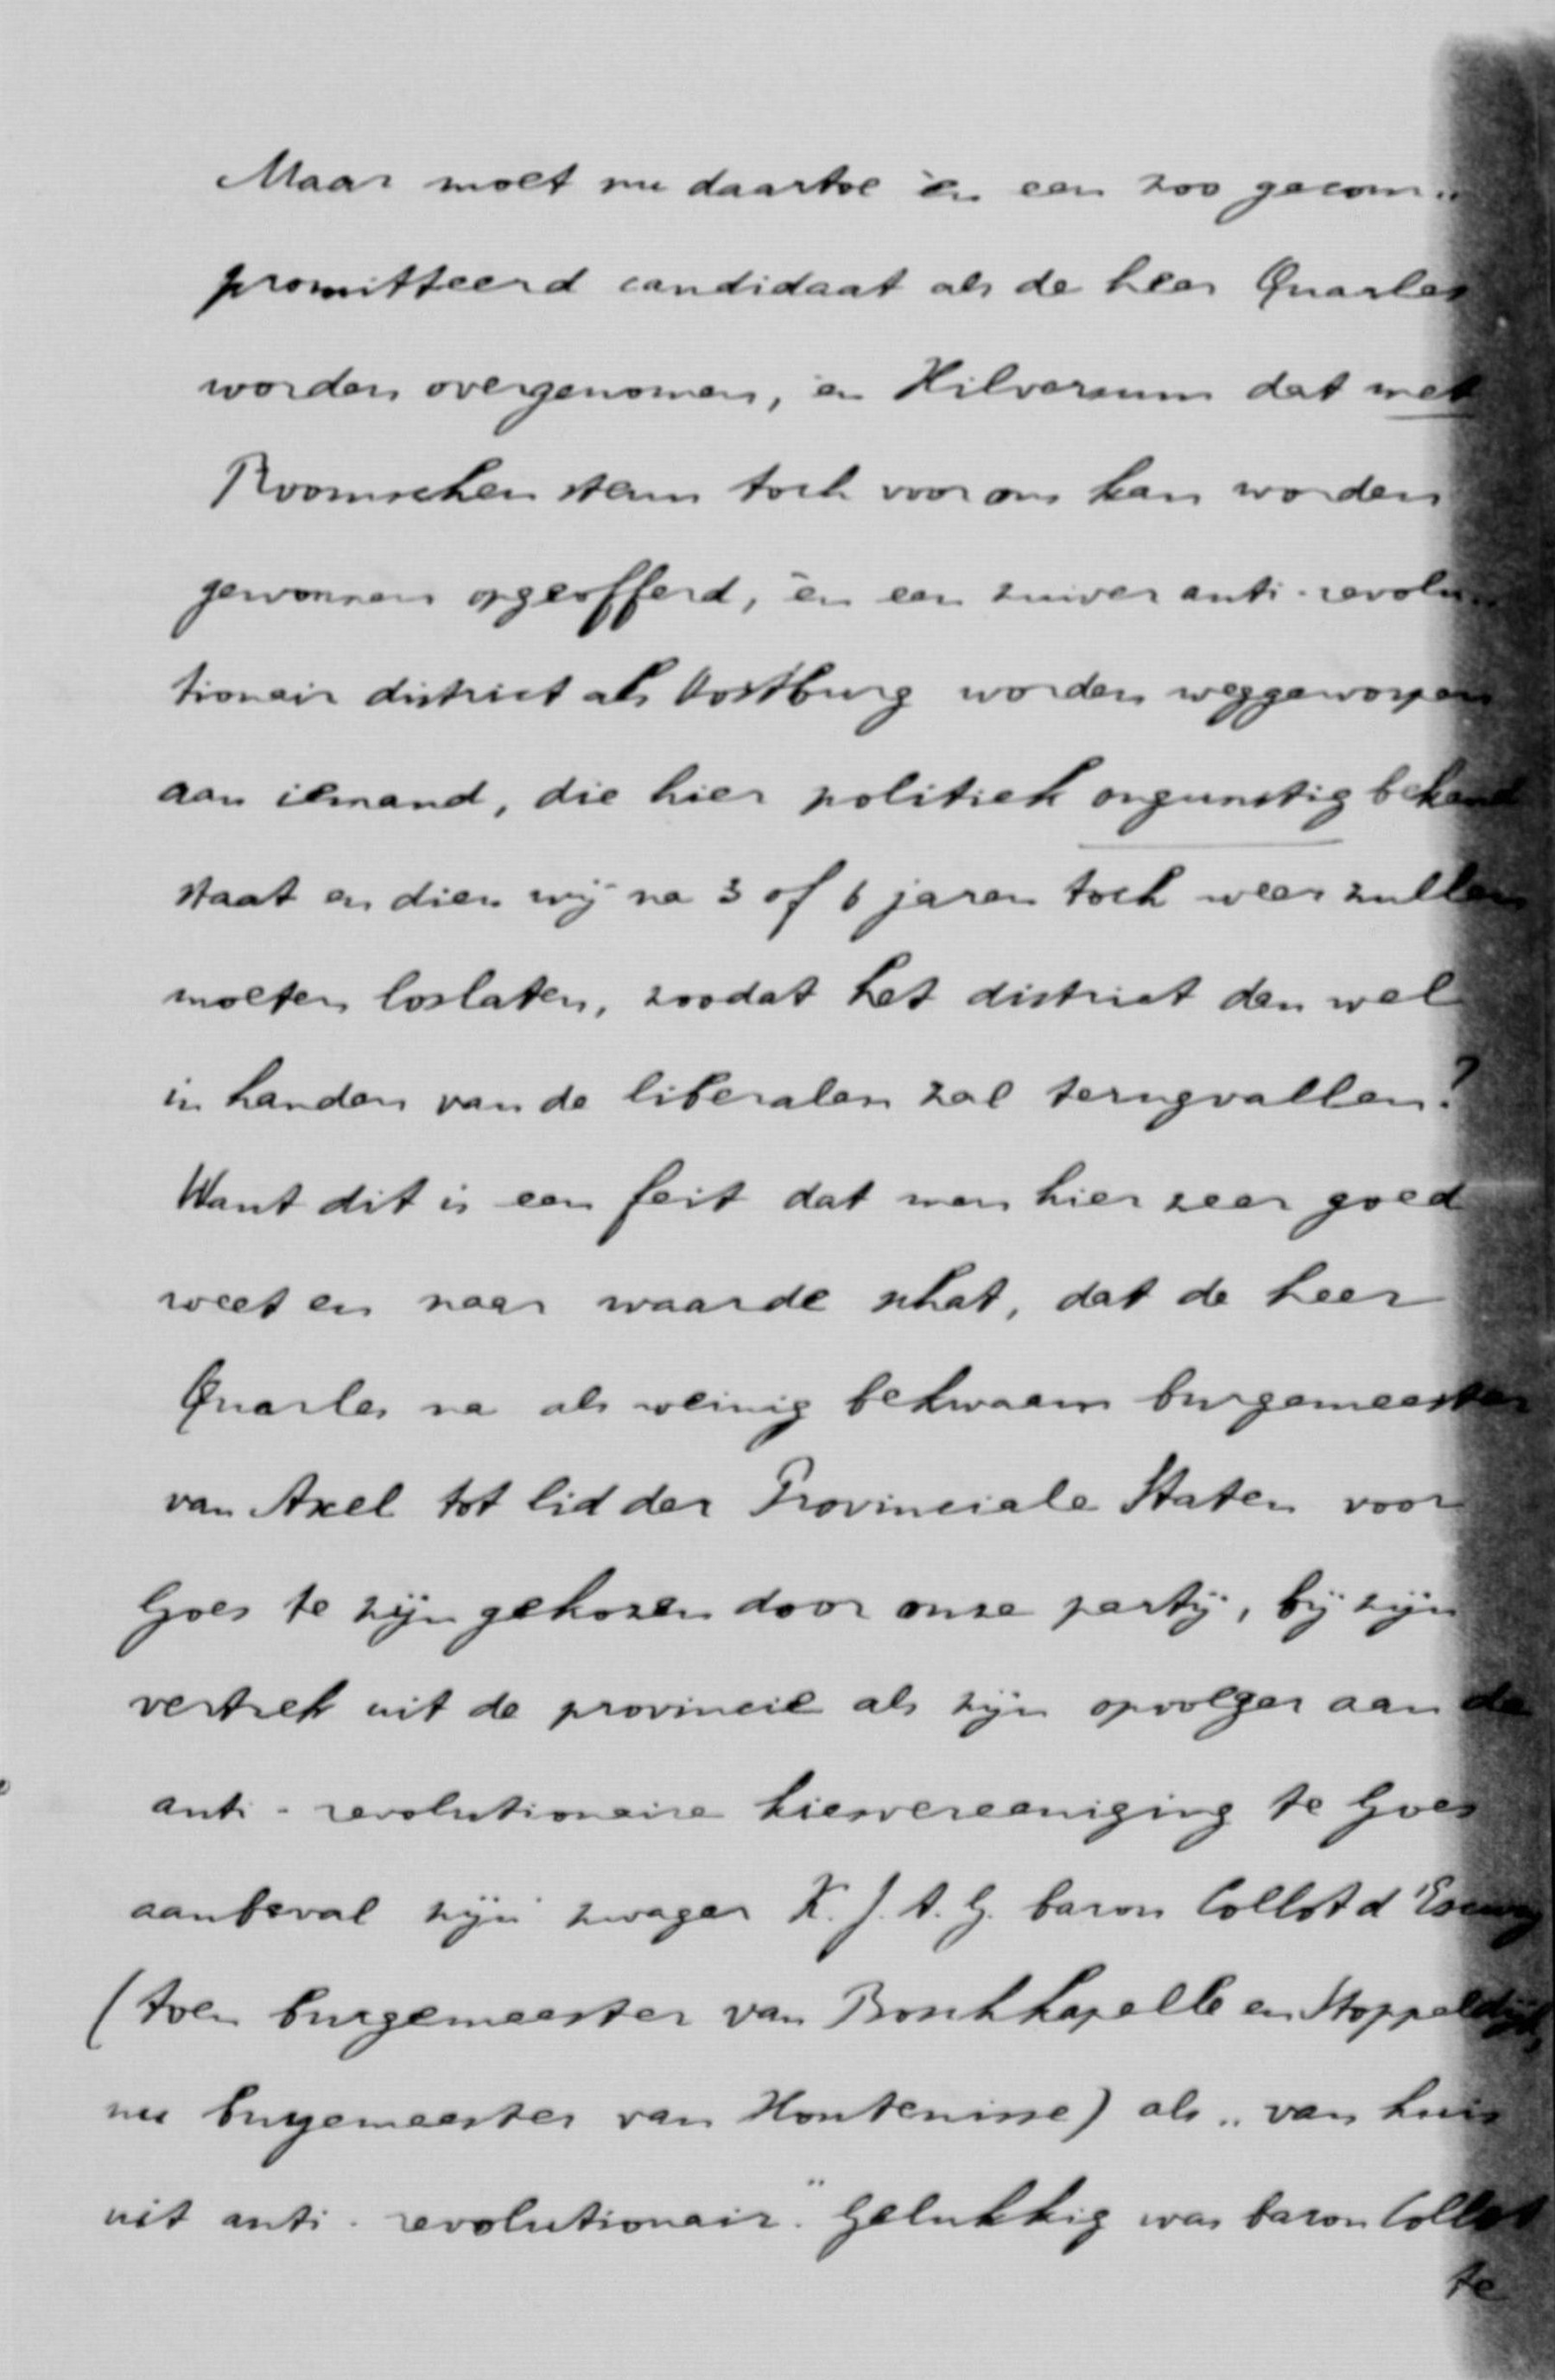 Maar moet nu daartoe èn een zoo gecom„
promitteerd candidaat als de heer Quarles
worden overgenomen, èn Hilversum dat met
Roomschen steun toch voor ons kan worden
gewonnen opgeofferd, èn een zuiver anti-revolu„
tionair district als Oostburg worden weggeworpen
aan iemand, die hier politiek ongunstig bekend
staat en dien wij na 3 of 6 jaren toch weer zullen
moeten loslaten, zoodat het district dan wel
in handen van de liberalen zal terugvallen?
Want dit is een feit dat men hier zeer goed
weet en naar waarde schat, dat de heer
Quarles na als weinig bekwaam burgemeester
van Axel tot lid der Provinciale Staten voor
Goes te zijn gekozen door onze partij, bij zijn
vertrek uit de provincie als zijn opvolger aan de
anti-revolutionaire kiesvereeniging te Goes
aanbeval zijn zwager K. J. A. G. baron Collot d'Escury
(toen burgemeester van Boschkapelle en Stoppeldijk,
nu burgemeester van Hontenisse) als „van huis
uit anti-revolutionair." Gelukkig was baron Collot
te